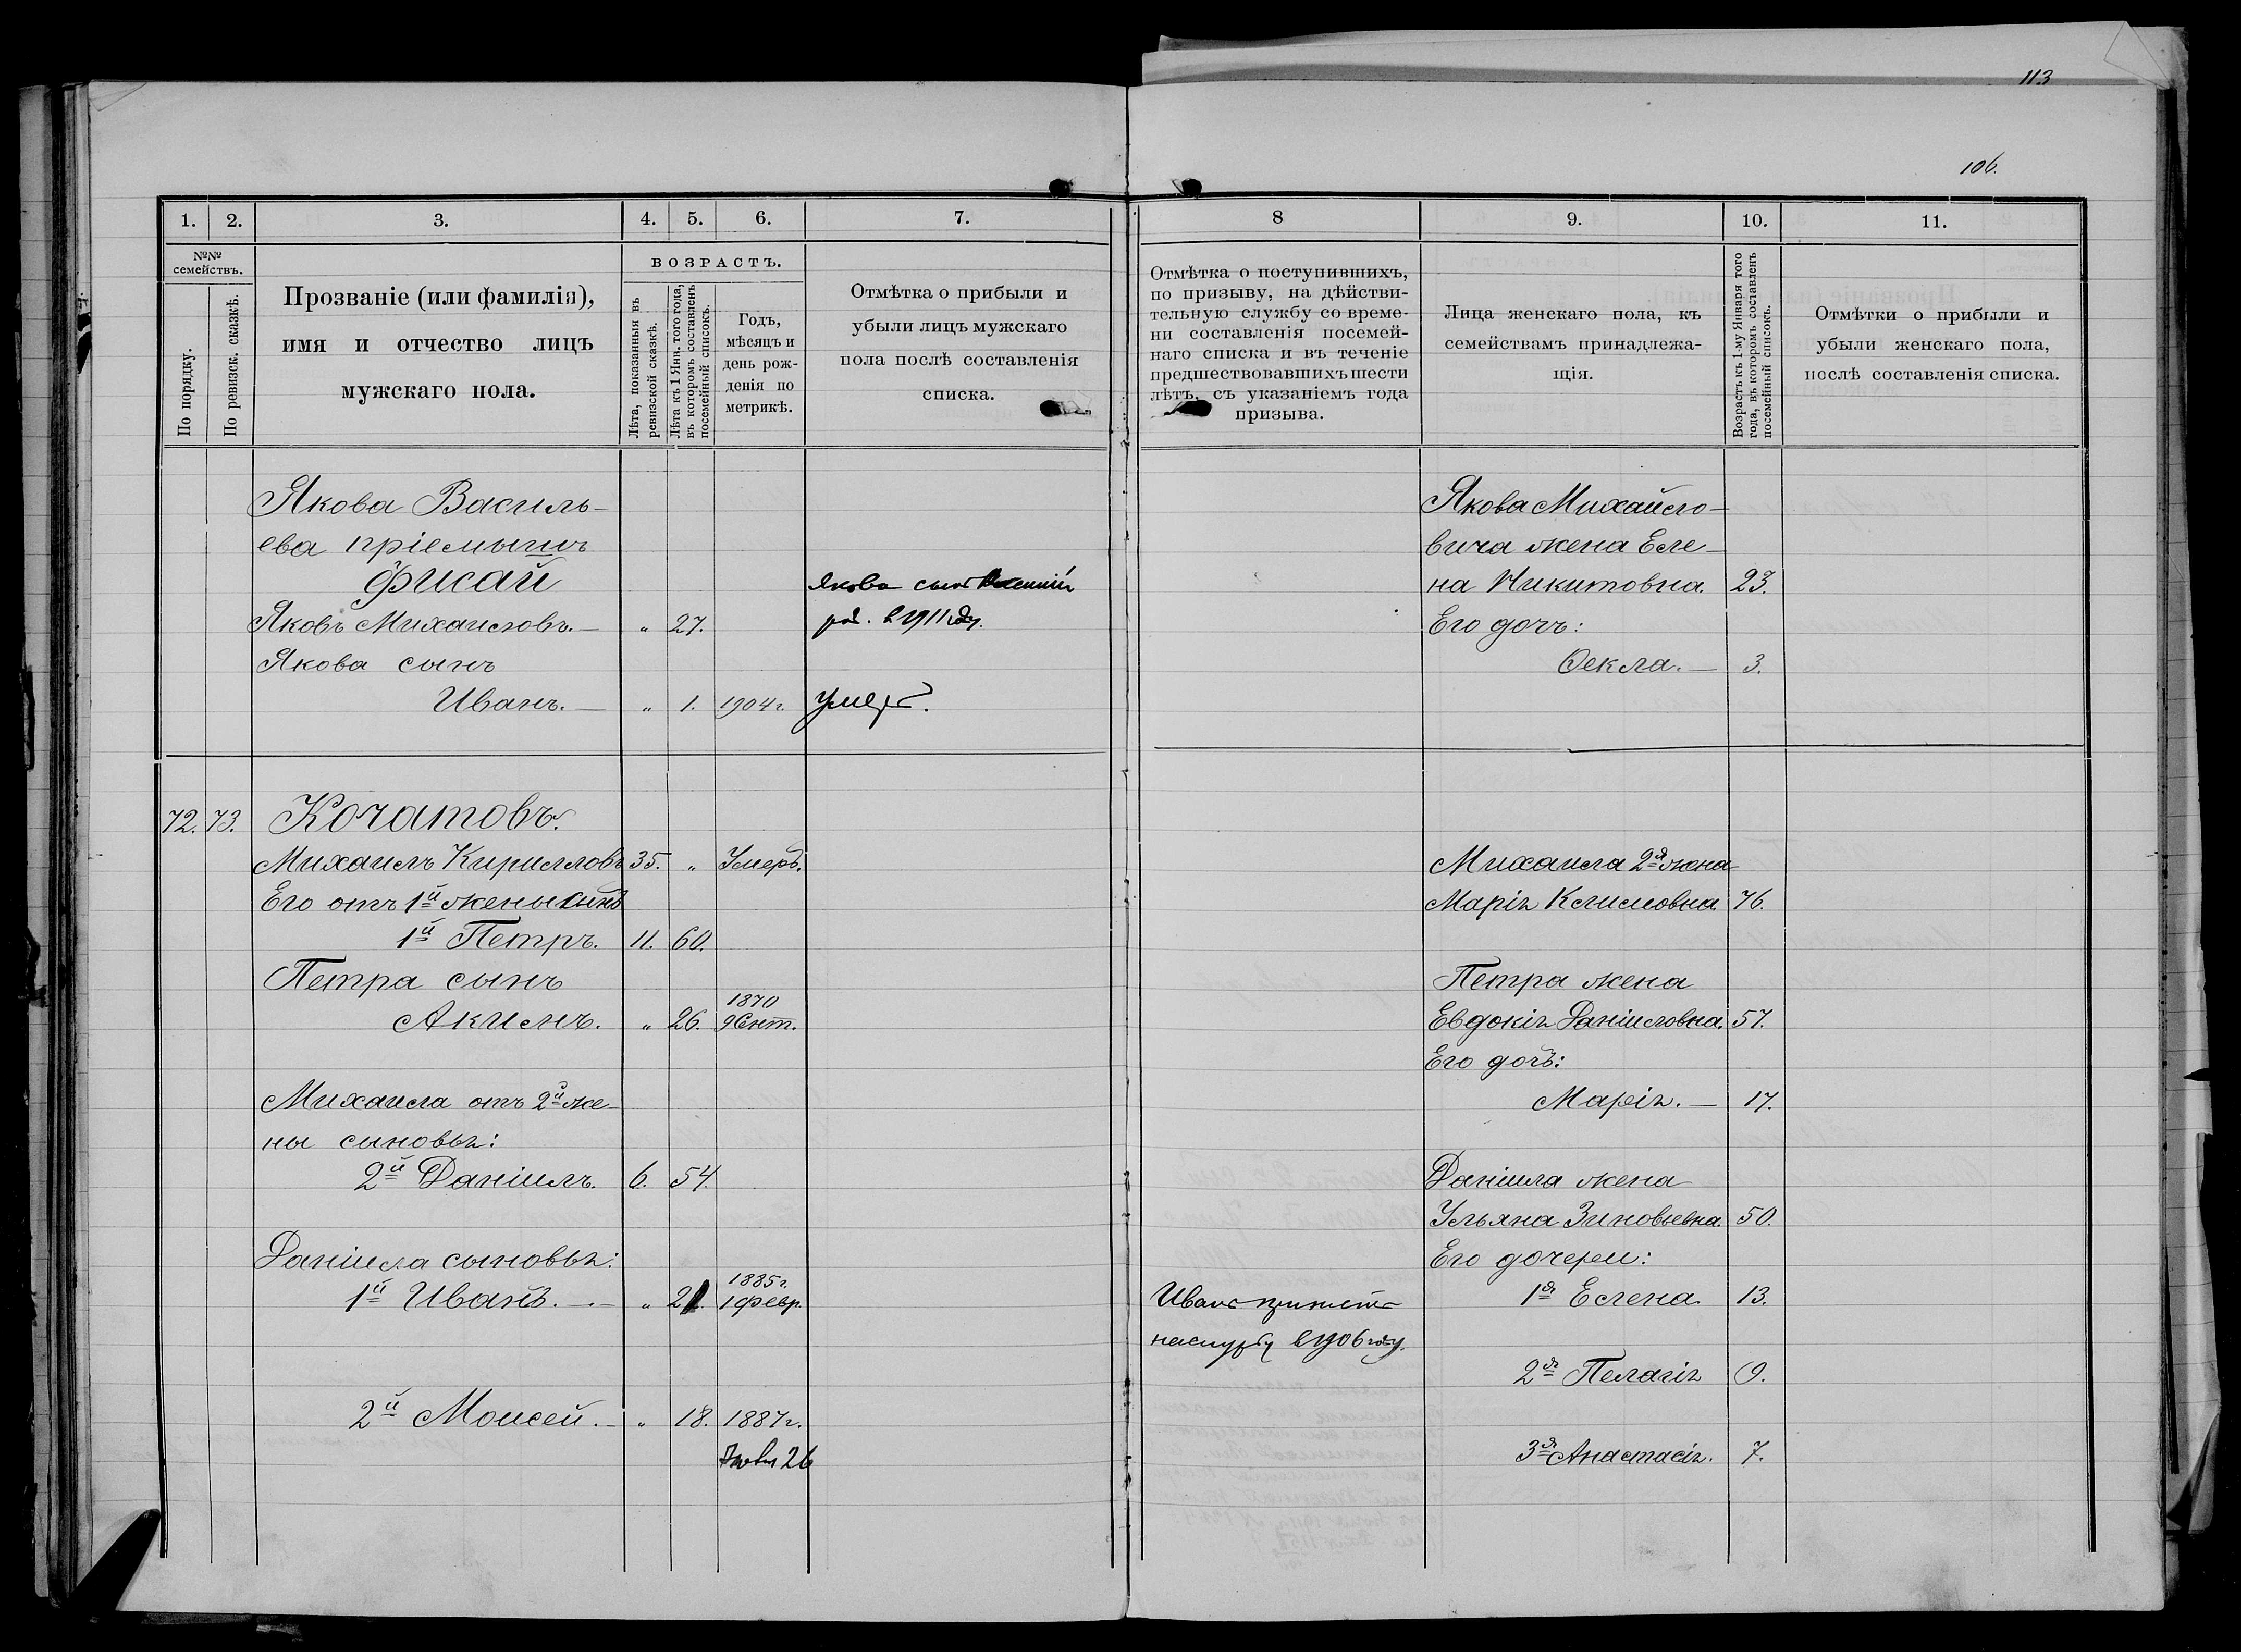 113
106.
1. 2. 3. 4. 5. 6. 7.
№№ семействъ.
По порядку.
По ревизск. сказкѣ.
Прозваніе (или фамилія),
имя и отчество лицъ
мужскаго пола.
ВОЗРАСТЪ.
Лѣта, показанныя въ
ревизской сказкѣ.
Лѣта къ 1 Янв. того года,
въ которомъ составленъ
посемейный списокъ.
Годъ,
мѣсяцъ и
день рож-
денія по
метрикѣ.
Отмѣтка о прибыли и
убыли лицъ мужскаго
пола послѣ составленія
списка.
Якова Василь-
ева пріемышъ
Фисай
Якова сынъ
Яковъ Михаиловъ. — " 27. род. в 1911 году.
Якова сынъ
Иванъ. — " 1. 1904 г. Умеръ.
72. 73. Кочатовъ.
Михаилъ Кирилловъ 35. " Умеръ.
Его отъ 1й жены сынъ
1й Петръ. 11. 60.
Петра сынъ
1870
Акимъ. " 26. 9 Сент.
Михаила отъ 2й же-
ны сыновья:
2й Даніилъ. 6. 54.
Даніила сыновья:
1885 г.
1й Иванъ. — " 21. 1 февр.
2й Моисей. — " 18. 1887 г.
26
8 9. 10. 11.
Отмѣтка о поступившихъ,
по призыву, на дѣйстви-
тельную службу со време-
ни составленія посемей-
наго списка и въ теченіе
предшествовавшихъ шести
лѣтъ, съ указаніемъ года
призыва.
Лица женскаго пола, къ
семействамъ принадлежа-
щія.
Возрастъ къ 1-му Января того
года, въ которомъ составленъ
посемейный списокъ.
Отмѣтки о прибыли и
убыли женскаго пола,
послѣ составленія списка.
Якова Михайло-
вича жена Еле-
на Никитовна. 23.
Его дочь:
Ѳекла. — 3.
Михаила 2я жена
Марія Климовна. 76.
Петра жена
Евдокія Даніиловна. 57.
Его дочь:
Марія. — 17.
Даніила жена
Ульяна Зиновьевна. 50.
Его дочери:
Иванъ принятъ 1я Елена. 13.
на службу в 1906 году.
2я Пелагія 9.
3я Анастасія. 7.